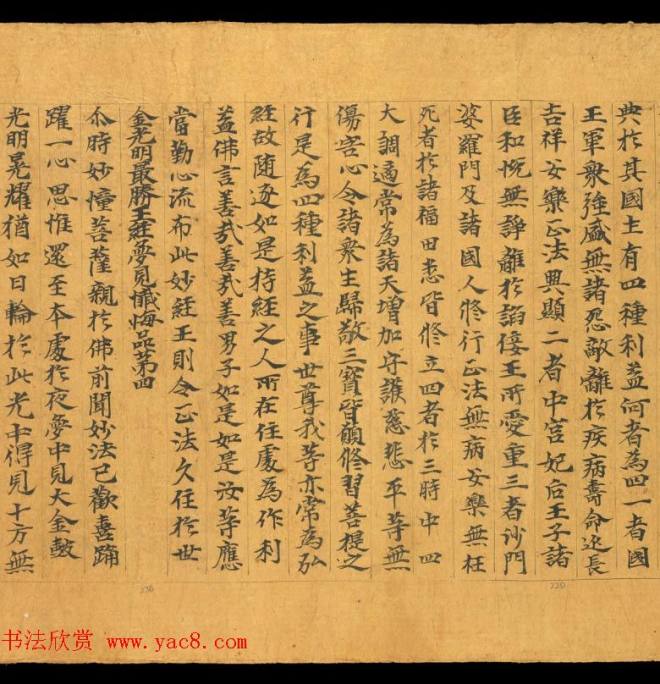 典於其國土有四種利益何者為四一者國
王軍衆強盛無諸怨敵離於疾病壽命延長
吉祥安樂正法興顯二者中宮妃后王子諸
臣和悅無諍離於諂侫王所愛重三者沙門
婆羅門及諸國人修行正法無病安樂無枉
死者於諸福田悉皆修立四者於三時中四
大調適常為諸天增加守護慈悲平等無
傷害心令諸衆生歸敬三寶皆願修習菩提之
行是為四種利益之事世尊我等亦常為弘
經故隨逐如是持經之人所在住處為作利
益佛言善哉善哉善男子如是如是汝等應
當勤心流布此妙經王則令正法久住於世
金光明最勝王經夢見懺悔品第四
尒時妙幢菩薩親於佛前聞妙法已歡喜踊
躍一心思惟還至本處於夜夢中見大金鼓
光明晃耀猶如日輪於此光中得見十方無
书法欣赏 www.yac8.com